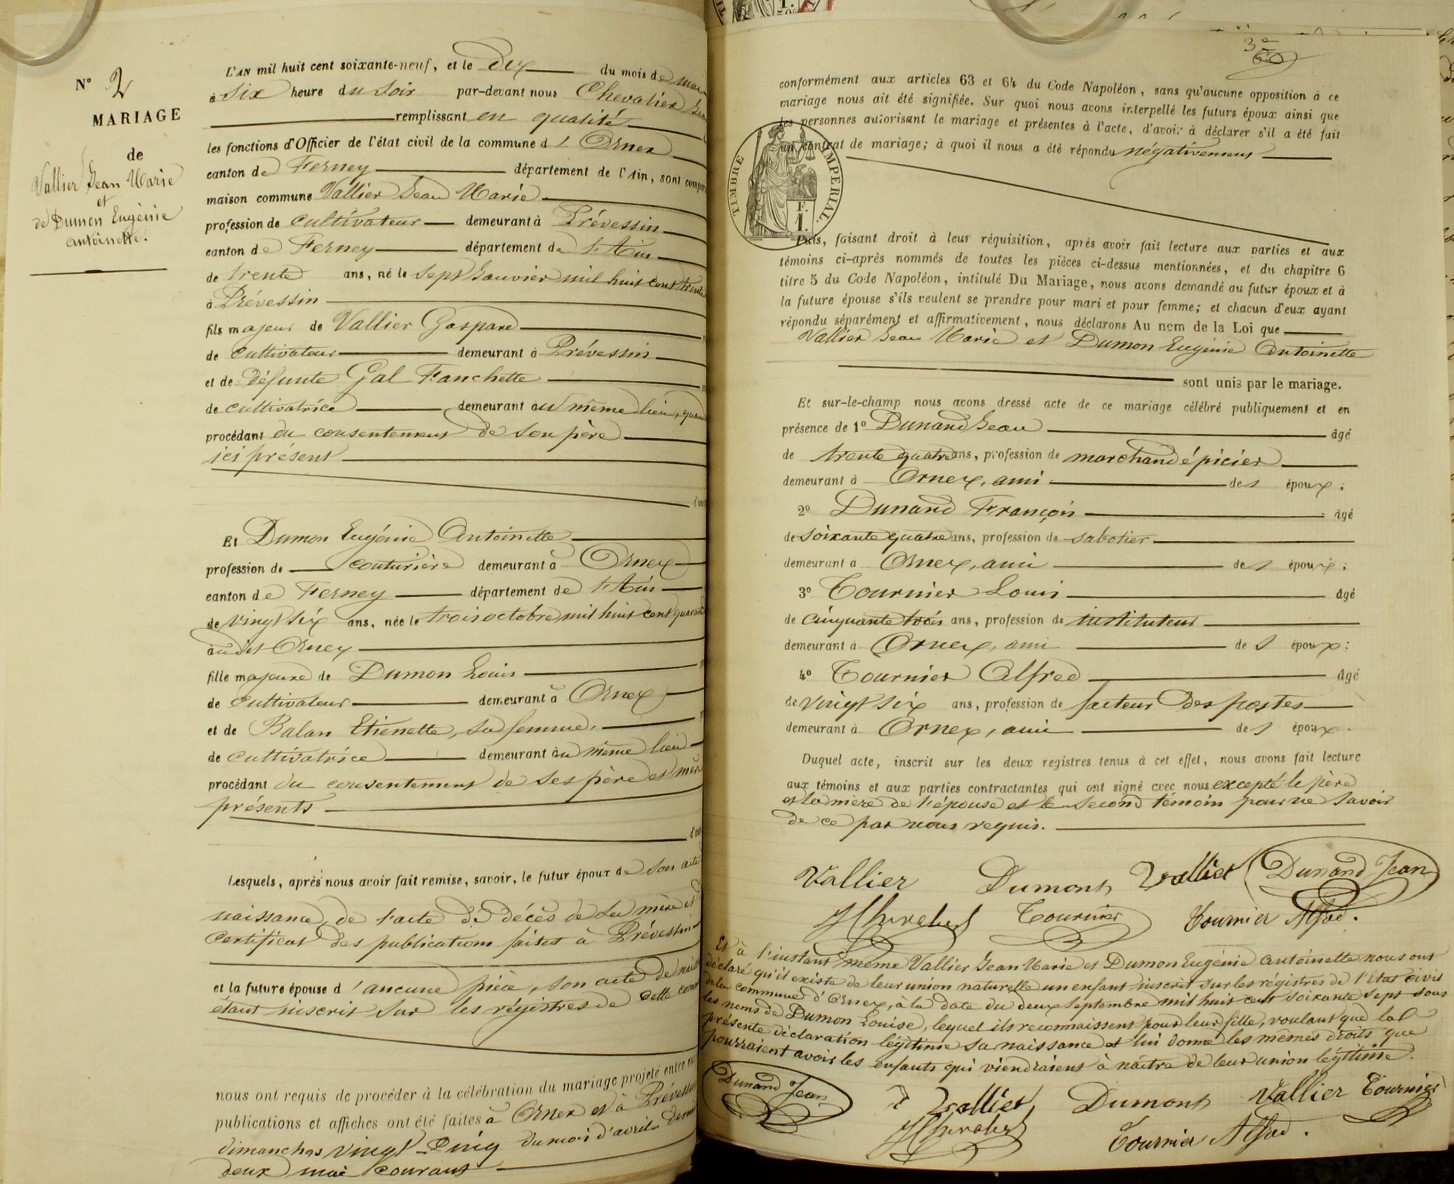 N° 2
MARIAGE
de
Vallier Jean Marie
et
de Dumon Eugénie
Antoinette.
L'AN mil huit cent soixante-neuf, et le dix du mois de mai
à six heure du soir par-devant nous Chevalier
remplissant en qualité
les fonctions d'Officier de l'état civil de la commune d'Ornex
canton de Ferney département de l'Ain, sont
maison commune Vallier Jean Marie
profession de cultivateur demeurant à Prévessin
canton de Ferney département de l'Ain
de trente ans, né le sept Janvier mil huit cent trente
à Prévessin
fils majeur de Vallier Gaspard
de cultivateur demeurant à Prévessin
et de défunte Gal Fanchette
de cultivatrice demeurant au même lieu,
procédant du consentement de son père
ici présent
Et Dumon Eugénie Antoinette
profession de couturière demeurant à Ornex
canton de Ferney département de l'Ain
de vingt six ans, née le trois octobre mil huit cent quarante
audit Ornex
fille majeure de Dumon Louis
de cultivateur demeurant à Ornex
et de Balan Etienette, sa femme,
de cultivatrice demeurant au même lieu
procédant du consentement de ses père et mère
présents
Lesquels, après nous avoir fait remise, savoir, le futur époux de son acte
naissance, de l'acte de décès de sa mère et
certificat des publications faites à Prévessin
et la future épouse d'aucune pièce, son acte de
étant inscrit sur les régistres de cette
nous ont requis de procéder à la célébration du mariage projeté entre
publications et affiches ont été faites à Ornex et à Prévessin
dimanches vingt-cinq du mois d'avril dernier
deux mai courant
conformément aux articles 63 et 64 du Code Napoléon, sans qu'aucune opposition à ce
mariage nous ait été signifiée. Sur quoi nous avons interpellé les futurs époux ainsi que
les personnes autorisant le mariage et présentes à l'acte, d'avoir à déclarer s'il a été fait
un contrat de mariage; à quoi il nous a été répondu négativement
TIMBRE IMPÉRIAL.
1 F.
Puis, faisant droit à leur réquisition, après avoir fait lecture aux parties et aux
témoins ci-après nommés de toutes les pièces ci-dessus mentionnées, et du chapitre 6
titre 5 du Code Napoléon, intitulé Du Mariage, nous avons demandé au futur époux et à
la future épouse s'ils veulent se prendre pour mari et pour femme; et chacun d'eux ayant
répondu séparément et affirmativement, nous déclarons Au nom de la Loi que
Vallier Jean Marie et Dumon Eugénie Antoinette
sont unis par le mariage.
Et sur-le-champ nous avons dressé acte de ce mariage célébré publiquement et en
présence de 1° Dunand Jean âgé
de trente quatre ans, profession de marchand épicier
demeurant à Ornex, ami des époux:
2° Dunand François âgé
de soixante quatre ans, profession de sabotier
demeurant à Ornex, ami des époux:
3° Tournier Louis âgé
de cinquante trois ans, profession de instituteur
demeurant à Ornex, ami des époux:
4° Tournier Alfred âgé
de vingt six ans, profession de facteur des postes
demeurant à Ornex, ami des époux.
Duquel acte, inscrit sur les deux registres tenus à cet effet, nous avons fait lecture
aux témoins et aux parties contractantes qui ont signé avec nous excepté le père
et la mère de l'épouse et le second témoin pour ne savoir
de ce par nous requis.
Vallier Dumont Vallier Dunand Jean
Tournier Tournier Alfred.
Et à l'instant même Vallier Jean Marie et Dumon Eugénie Antoinette nous ont
déclaré qu'il existe de leur union naturelle un enfant inscrit sur les régistres de l'Etat civil
de la commune d'Ornex, à la date du deux septembre mil huit cent soixante sept sous
les noms de Dumon Louise, lequel ils reconnaissent pour leur fille, voulant que la
présente déclaration légitime sa naissance et lui donne les mêmes droits que
pourraient avoir les enfants qui viendraient à naître de leur union légitime.
Dunand Jean Vallier Dumont Vallier Tournier
Tournier Alfred.